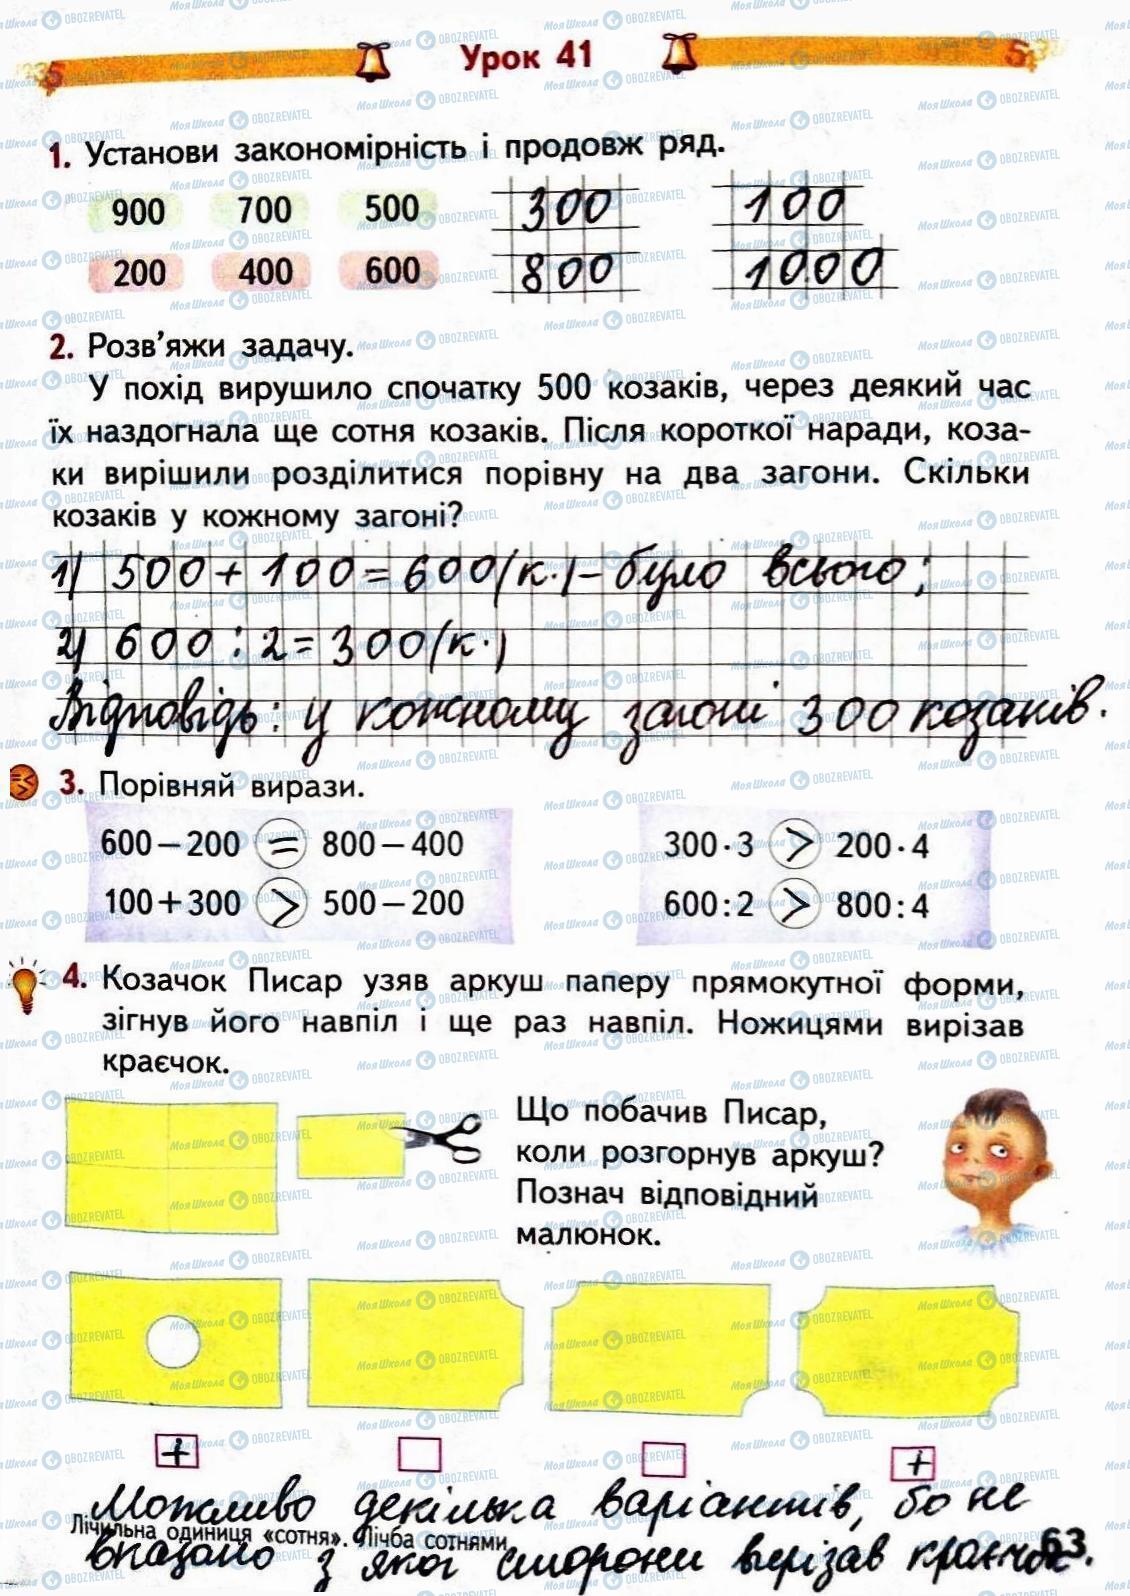 Урок 41
1. Установи закономірність і продовж ряд.
900 700 500 300 100
200 400 600 800 1000
2. Розв'яжи задачу.
У похід вирушило спочатку 500 козаків, через деякий час
їх наздогнала ще сотня козаків. Після короткої наради, коза-
ки вирішили розділитися порівну на два загони. Скільки
козаків у кожному загоні?
1) 500 + 100 = 600 (к.) – було всього;
2) 600 : 2 = 300 (к.)
Відповідь: у кожному загоні 300 козаків.
3. Порівняй вирази.
600 – 200 = 800 – 400
300 · 3 > 200 · 4
100 + 300 > 500 – 200
600 : 2 > 800 : 4
4. Козачок Писар узяв аркуш паперу прямокутної форми,
зігнув його навпіл і ще раз навпіл. Ножицями вирізав
краєчок.
Що побачив Писар,
коли розгорнув аркуш?
Познач відповідний
малюнок.
+ +
Можливо декілька варіантів, бо не
Лічильна одиниця «сотня». Лічба сотнями.
вказано з якої сторони вирізав краєчок.
63
МояШкола OBOZREVATEL